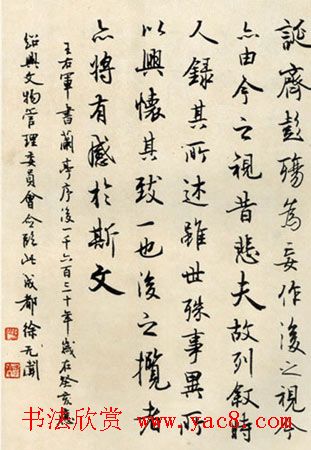 誕齊彭殤為妄作後之視今
亦由今之視昔悲夫故列敘時
人錄其所述雖世殊事異所
以興懷其致一也後之攬者
亦將有感於斯文
王右軍書蘭亭序後一千六百三十年歲在癸亥應
紹興文物管理委員會令臨此成都徐无聞
书法欣赏 www.yac8.com